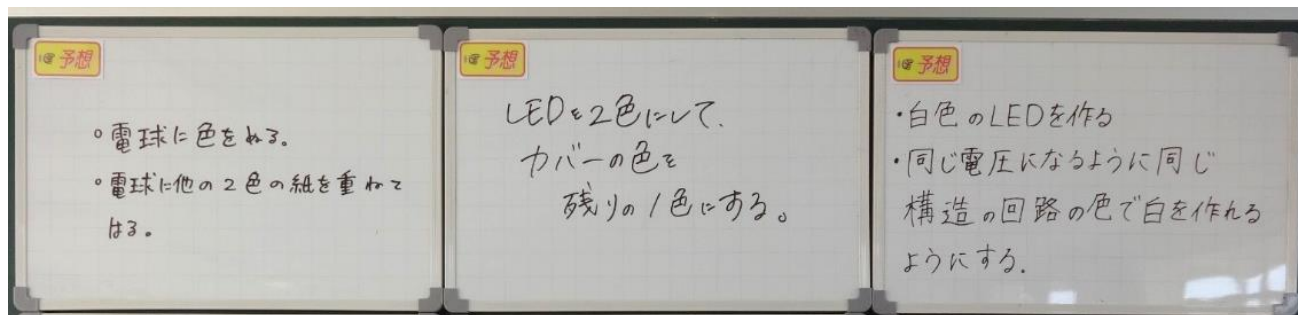 予想
・電球に色をぬる。
・電球に他の2色の紙を重ねて
はる。
予想
LEDを2色にして、
カバーの色を
残りの1色にする。
予想
・白色のLEDを作る
・同じ電圧になるように同じ
構造の回路の色で白を作れる
ようにする.